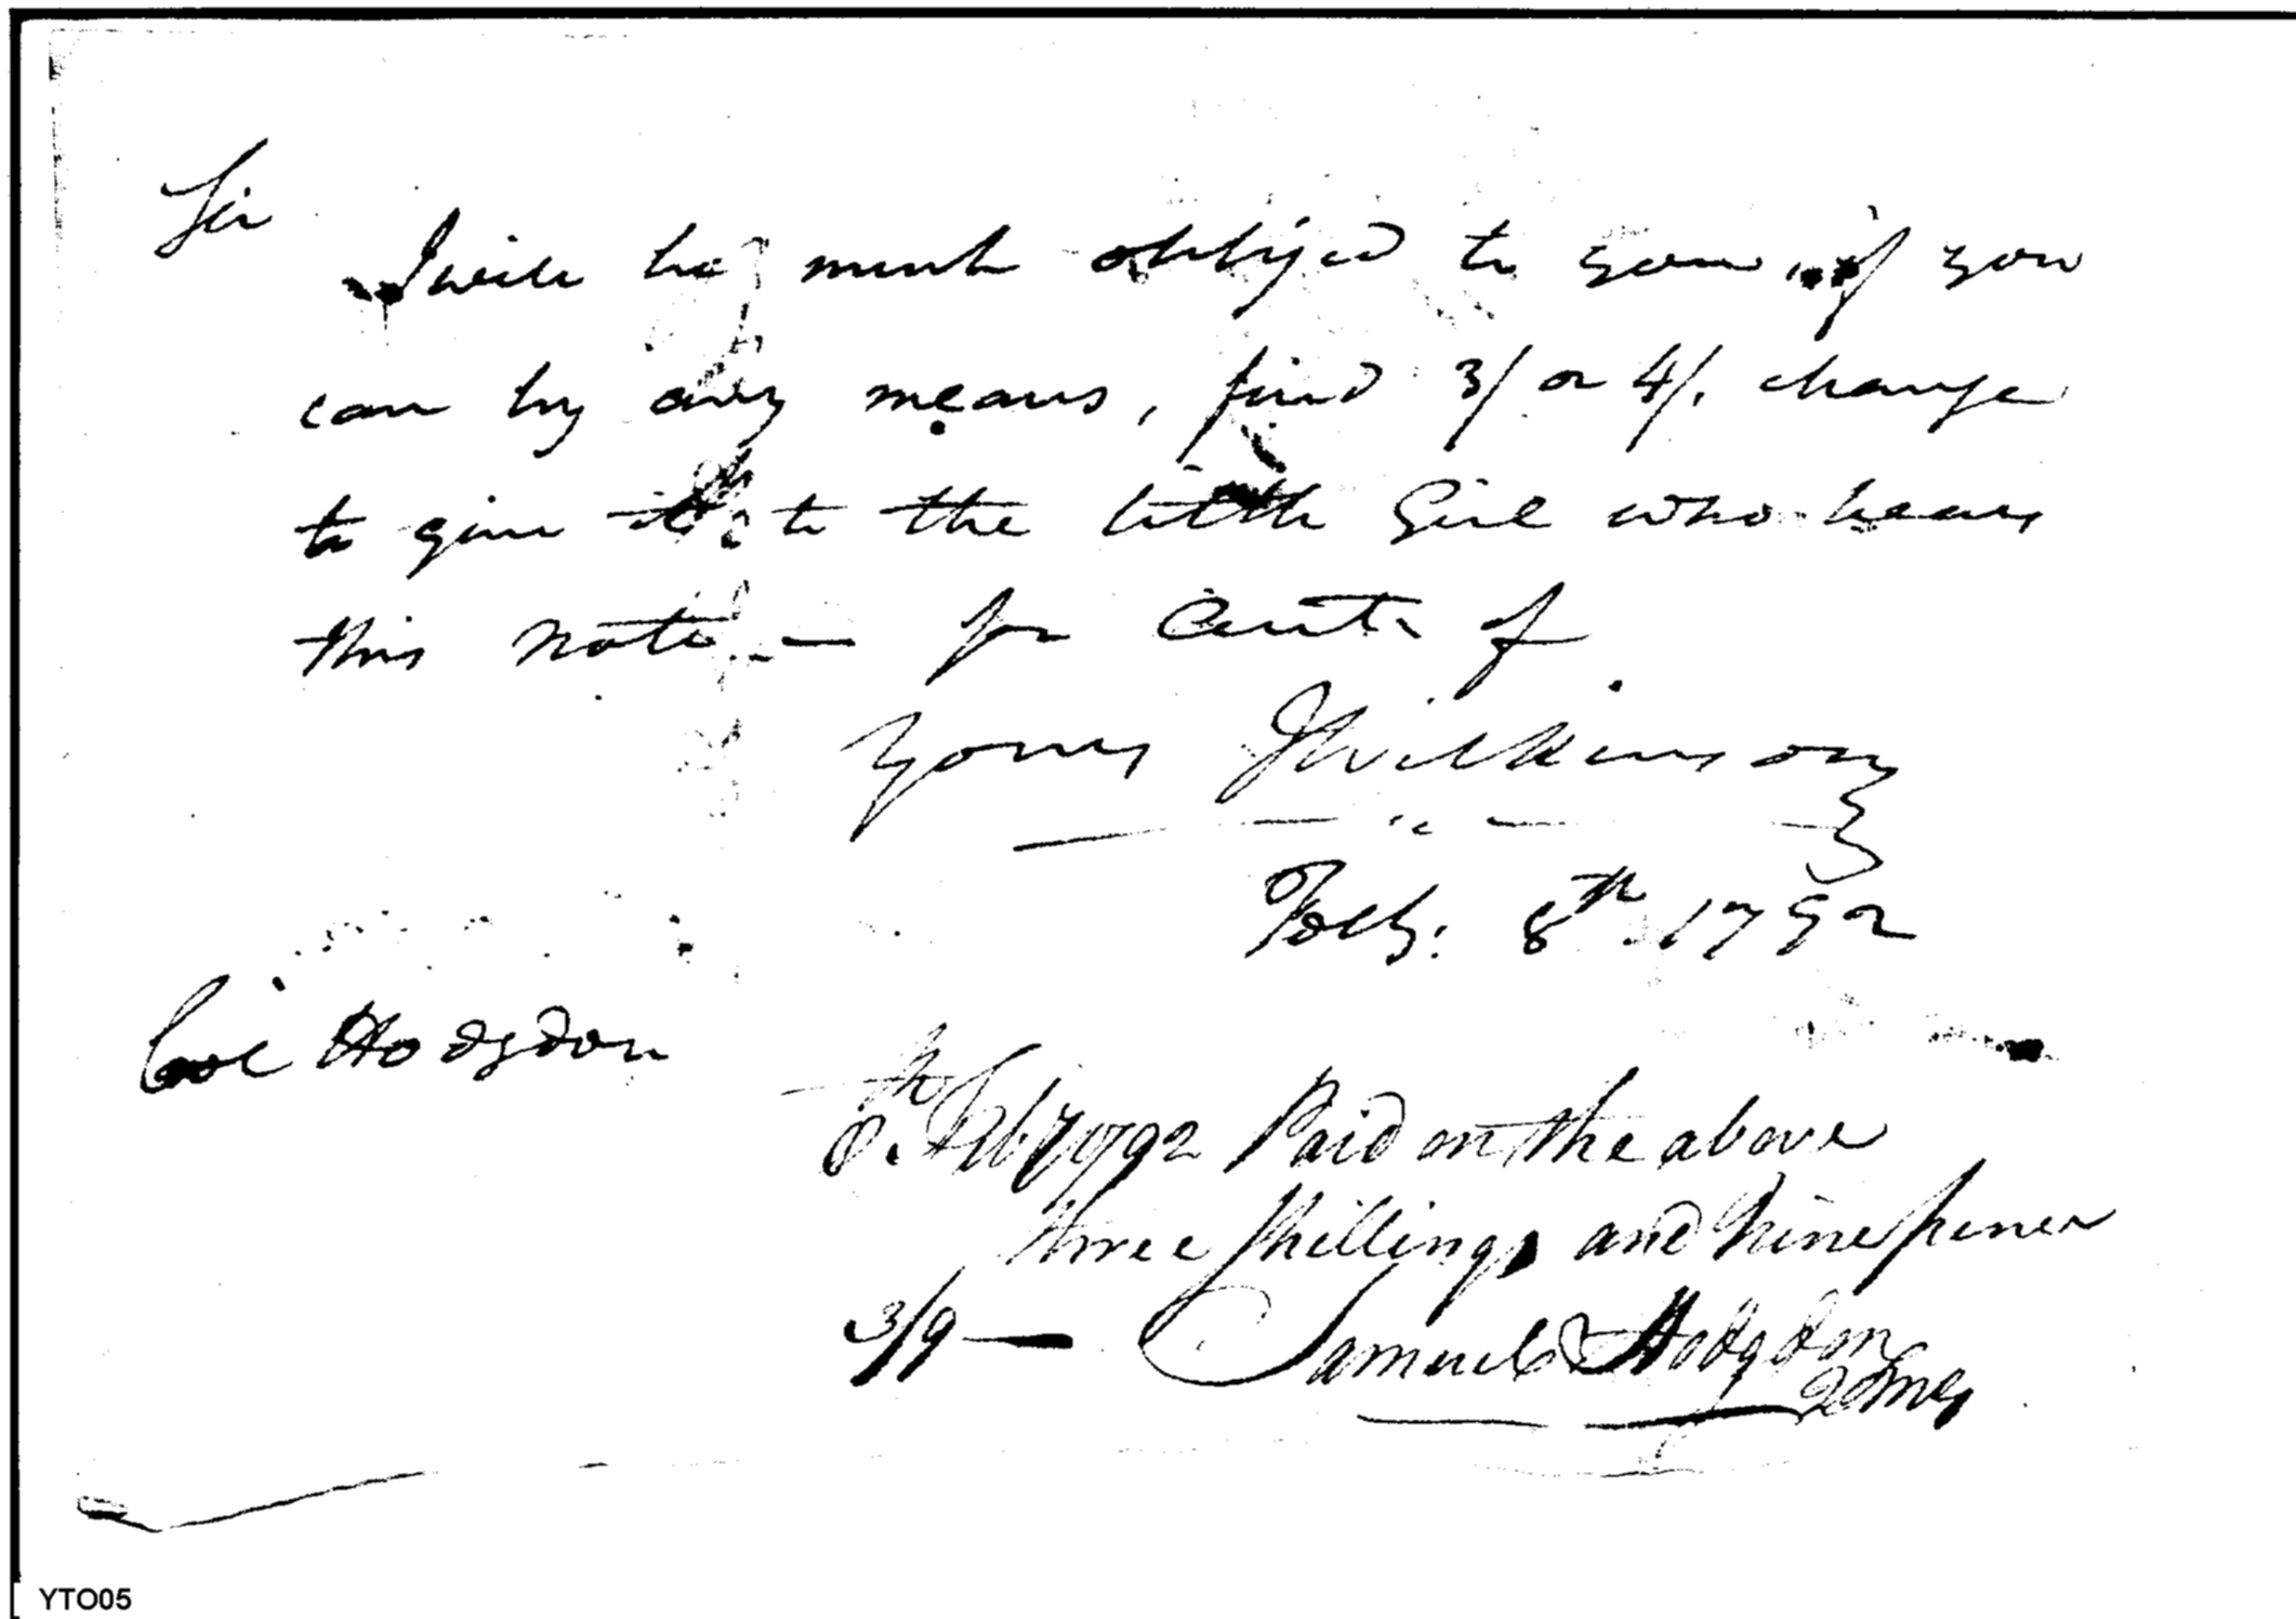 Sir
I will be much obliged to you, if you
can by any means, find 3/ or 4/. change
to give it to the little Girl who bears
this note — for acct. of
Yours JWilkinson
Feby: 8th. 1792
Col Hodgdon
8th. Feby 1792 Paid on the above
three shillings and nine pence
3/9 — Samuel Hodgdon
QMG
YTO05